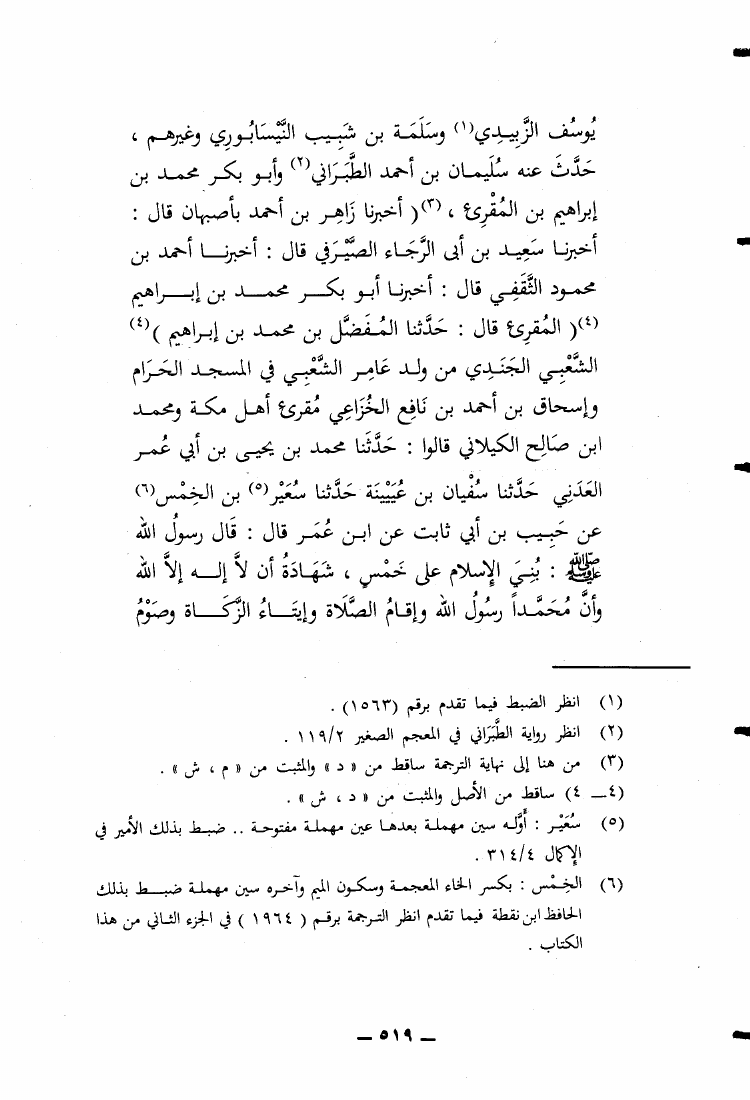 يُوسُف الزَّبِيدِي(١) وسَلَمَة بن شَبِيب النَّيْسَابُورِي وغيرهم ،
حَدَّثَ عنه سُلَيمان بن أحمد الطَّبَرَاني(٢) وأبو بكر محمد بن
إبراهيم بن المُقْرِئ ، (٣)( أخبرنا زَاهِر بن أحمد بأصبهان قال :
أخبرنا سَعِيد بن أبى الرَّجَاء الصَّيْرَفي قال : أخبرنا أحمد بن
محمود الثَّقَفِي قال : أخبرنا أبو بكر محمد بن إبراهيم
(٤)( المُقرِئ قال : حَدَّثنا المُفَضَّل بن محمد بن إبراهيم )(٤)
الشَّعْبِي الجَنَدِي من ولد عَامِر الشَّعْبِي في المسجد الحَرَام
وإسحاق بن أحمد بن نَافِع الخُزَاعِي مُقرئ أهل مكة ومحمد
ابن صَالِح الكيلاني قالوا : حَدَّثَنا محمد بن يحيى بن أبي عُمر
العَدَنِي حَدَّثنا سُفْيان بن عُيَيْنَة حَدَّثنا سُعَيْر(٥) بن الخِمْس(٦)
عن حَبِيب بن أبي ثابت عن ابن عُمَر قال : قَال رسولُ الله
ﷺ : بُنِيَ الإِسلام على خَمْسٍ ، شَهَادَةُ أن لاَّ إله إلاَّ الله
وأنَّ مُحَمَّداً رسُولُ الله وإقامُ الصَّلَاة وإيتَاءُ الزَّكَاة وصَوْمُ
(١) انظر الضبط فيما تقدم برقم (١٥٦٣) .
(٢) انظر رواية الطَّبَرَاني في المعجم الصغير ١١٩/٢ .
(٣) من هنا إلى نهاية الترجمة ساقط من « د » والمثبت من « م ، ش » .
(٤ــ ٤) ساقط من الأصل والمثبت من « د ، ش » .
(٥) سُعَيْر : أَوَّله سين مهملة بعدها عين مهملة مفتوحة .. ضبط بذلك الأمير في
الإكمال ٣١٤/٤ .
(٦) الخِمْس : بكسر الخاء المعجمة وسكون الميم وآخره سين مهملة ضبط بذلك
الحافظ ابن نقطة فيما تقدم انظر الترجمة برقم ( ١٩٦٤ ) في الجزء الثاني من هذا
الكتاب .
ــ ٥١٩ ــ